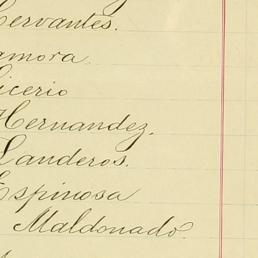 Cervantes.
amora.
icerio
Hernandez.
Landeros.
Espinosa
Maldonado.